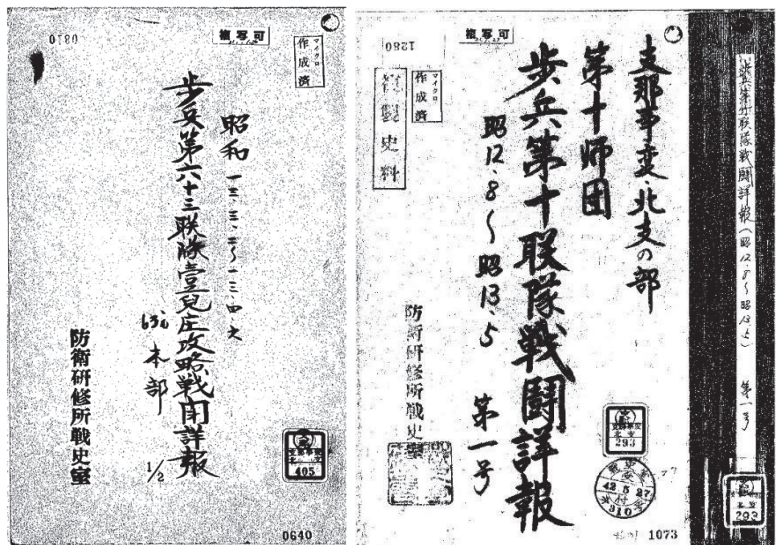 0810
複写可
マイクロ
作成済
昭和一三、三、三～一三、四、六
歩兵第六十三联隊壹兒庄攻略戦闘詳報
本部
1/2
防衛研修所戦史室
405
0640
複写可
1280
マイクロ
作成済
史料
支那事変・北支の部
第十師団
歩兵第十联隊戦闘詳報
昭12.8～昭13.5 第一号
防衛研修所戦史室
293
42 5 27
310
1073
歩兵第十联隊戦闘詳報(昭12.8～昭13.5) 第一号
293